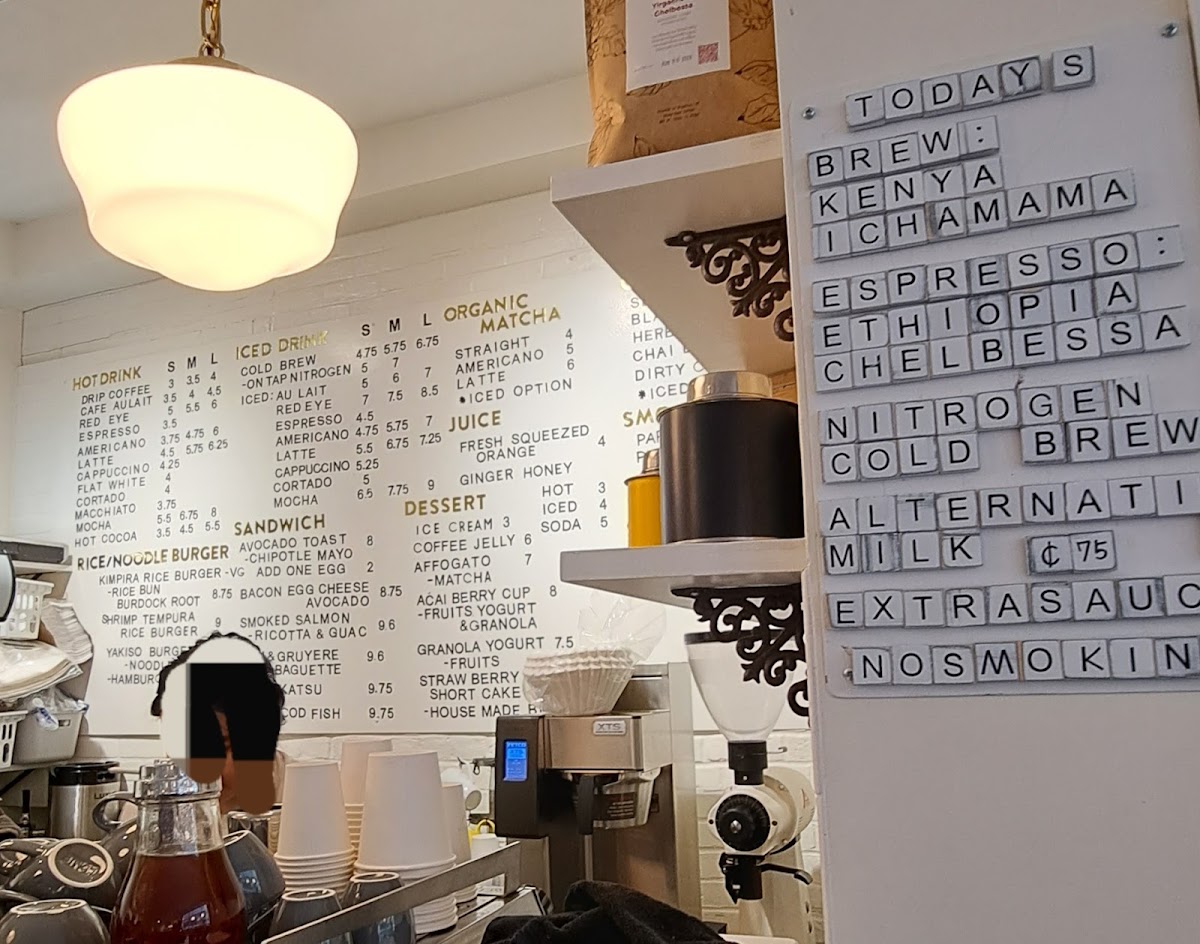 Chelbesta
HOT DRINK S M L
DRIP COFFEE 3 3.5 4
CAFE AU LAIT 3.5 4 4.5
RED EYE 5 5.5 6
ESPRESSO 3.5
AMERICANO 3.75 4.75 6
LATTE 4.5 5.75 6.25
CAPPUCCINO 4.25
FLAT WHITE 4
CORTADO 4
MACCHIATO 3.75
MOCHA 5.5 6.75 8
HOT COCOA 3.5 4.5 5.5
RICE/NOODLE BURGER
KIMPIRA RICE BURGER -VG
-RICE BUN
BURDOCK ROOT 8.75
SHRIMP TEMPURA
RICE BURGER 9
YAKISO
ICED DRINK S M L
COLD BREW 4.75 5.75 6.75
-ON TAP NITROGEN 5 7
ICED: AU LAIT 5 6 7
RED EYE 7 7.5 8.5
ESPRESSO 4.5
AMERICANO 4.75 5.75 7
LATTE 5.5 6.75 7.25
CAPPUCCINO 5.25
CORTADO 5
MOCHA 6.5 7.75 9
SANDWICH
AVOCADO TOAST 8
-CHIPOTLE MAYO
ADD ONE EGG 2
BACON EGG CHEESE 8.75
AVOCADO
SMOKED SALMON
-RICOTTA & GUAC 9.6
& GRUYERE 9.6
BAGUETTE
KATSU 9.75
COD FISH 9.75
ORGANIC
MATCHA
STRAIGHT 4
AMERICANO 5
LATTE 6
*ICED OPTION
JUICE
FRESH SQUEEZED
ORANGE 4
GINGER HONEY
HOT 3
ICED 4
SODA 5
DESSERT
ICE CREAM 3
COFFEE JELLY 6
AFFOGATO 7
-MATCHA
AÇAI BERRY CUP 8
-FRUITS YOGURT
&GRANOLA
GRANOLA YOGURT 7.5
-FRUITS
STRAW BERRY
SHORT CAKE
-HOUSE MADE
HERB
CHAI
DIRTY
*ICED
XTS
TODAYS
BREW:
KENYA
ICHAMAMA
ESPRESSO:
ETHIOPIA
CHELBESSA
NITROGEN
COLD BREW
ALTERNATI
MILK ¢75
EXTRASAUC
NOSMOKIN